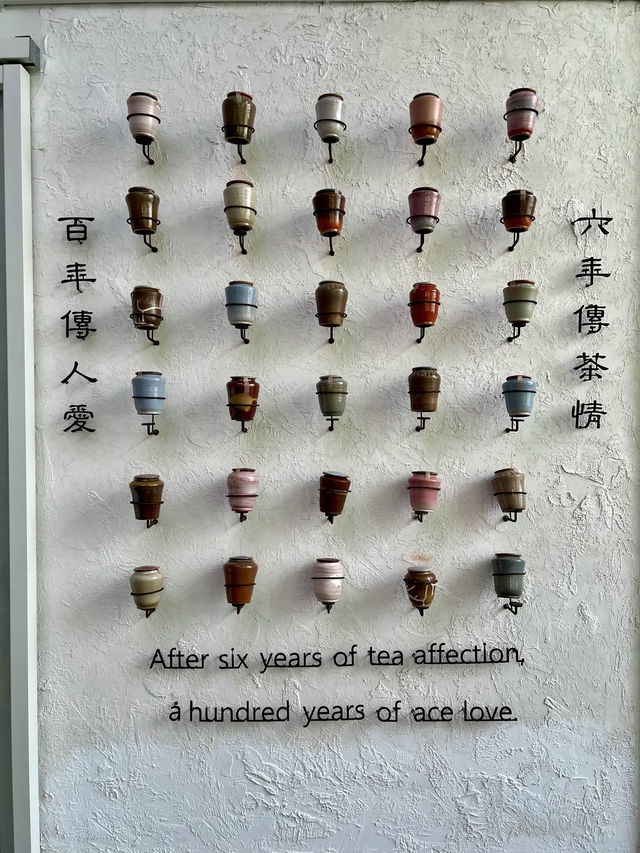 六年傳茶情
百年傳人愛
After six years of tea affection,
a hundred years of ace love.